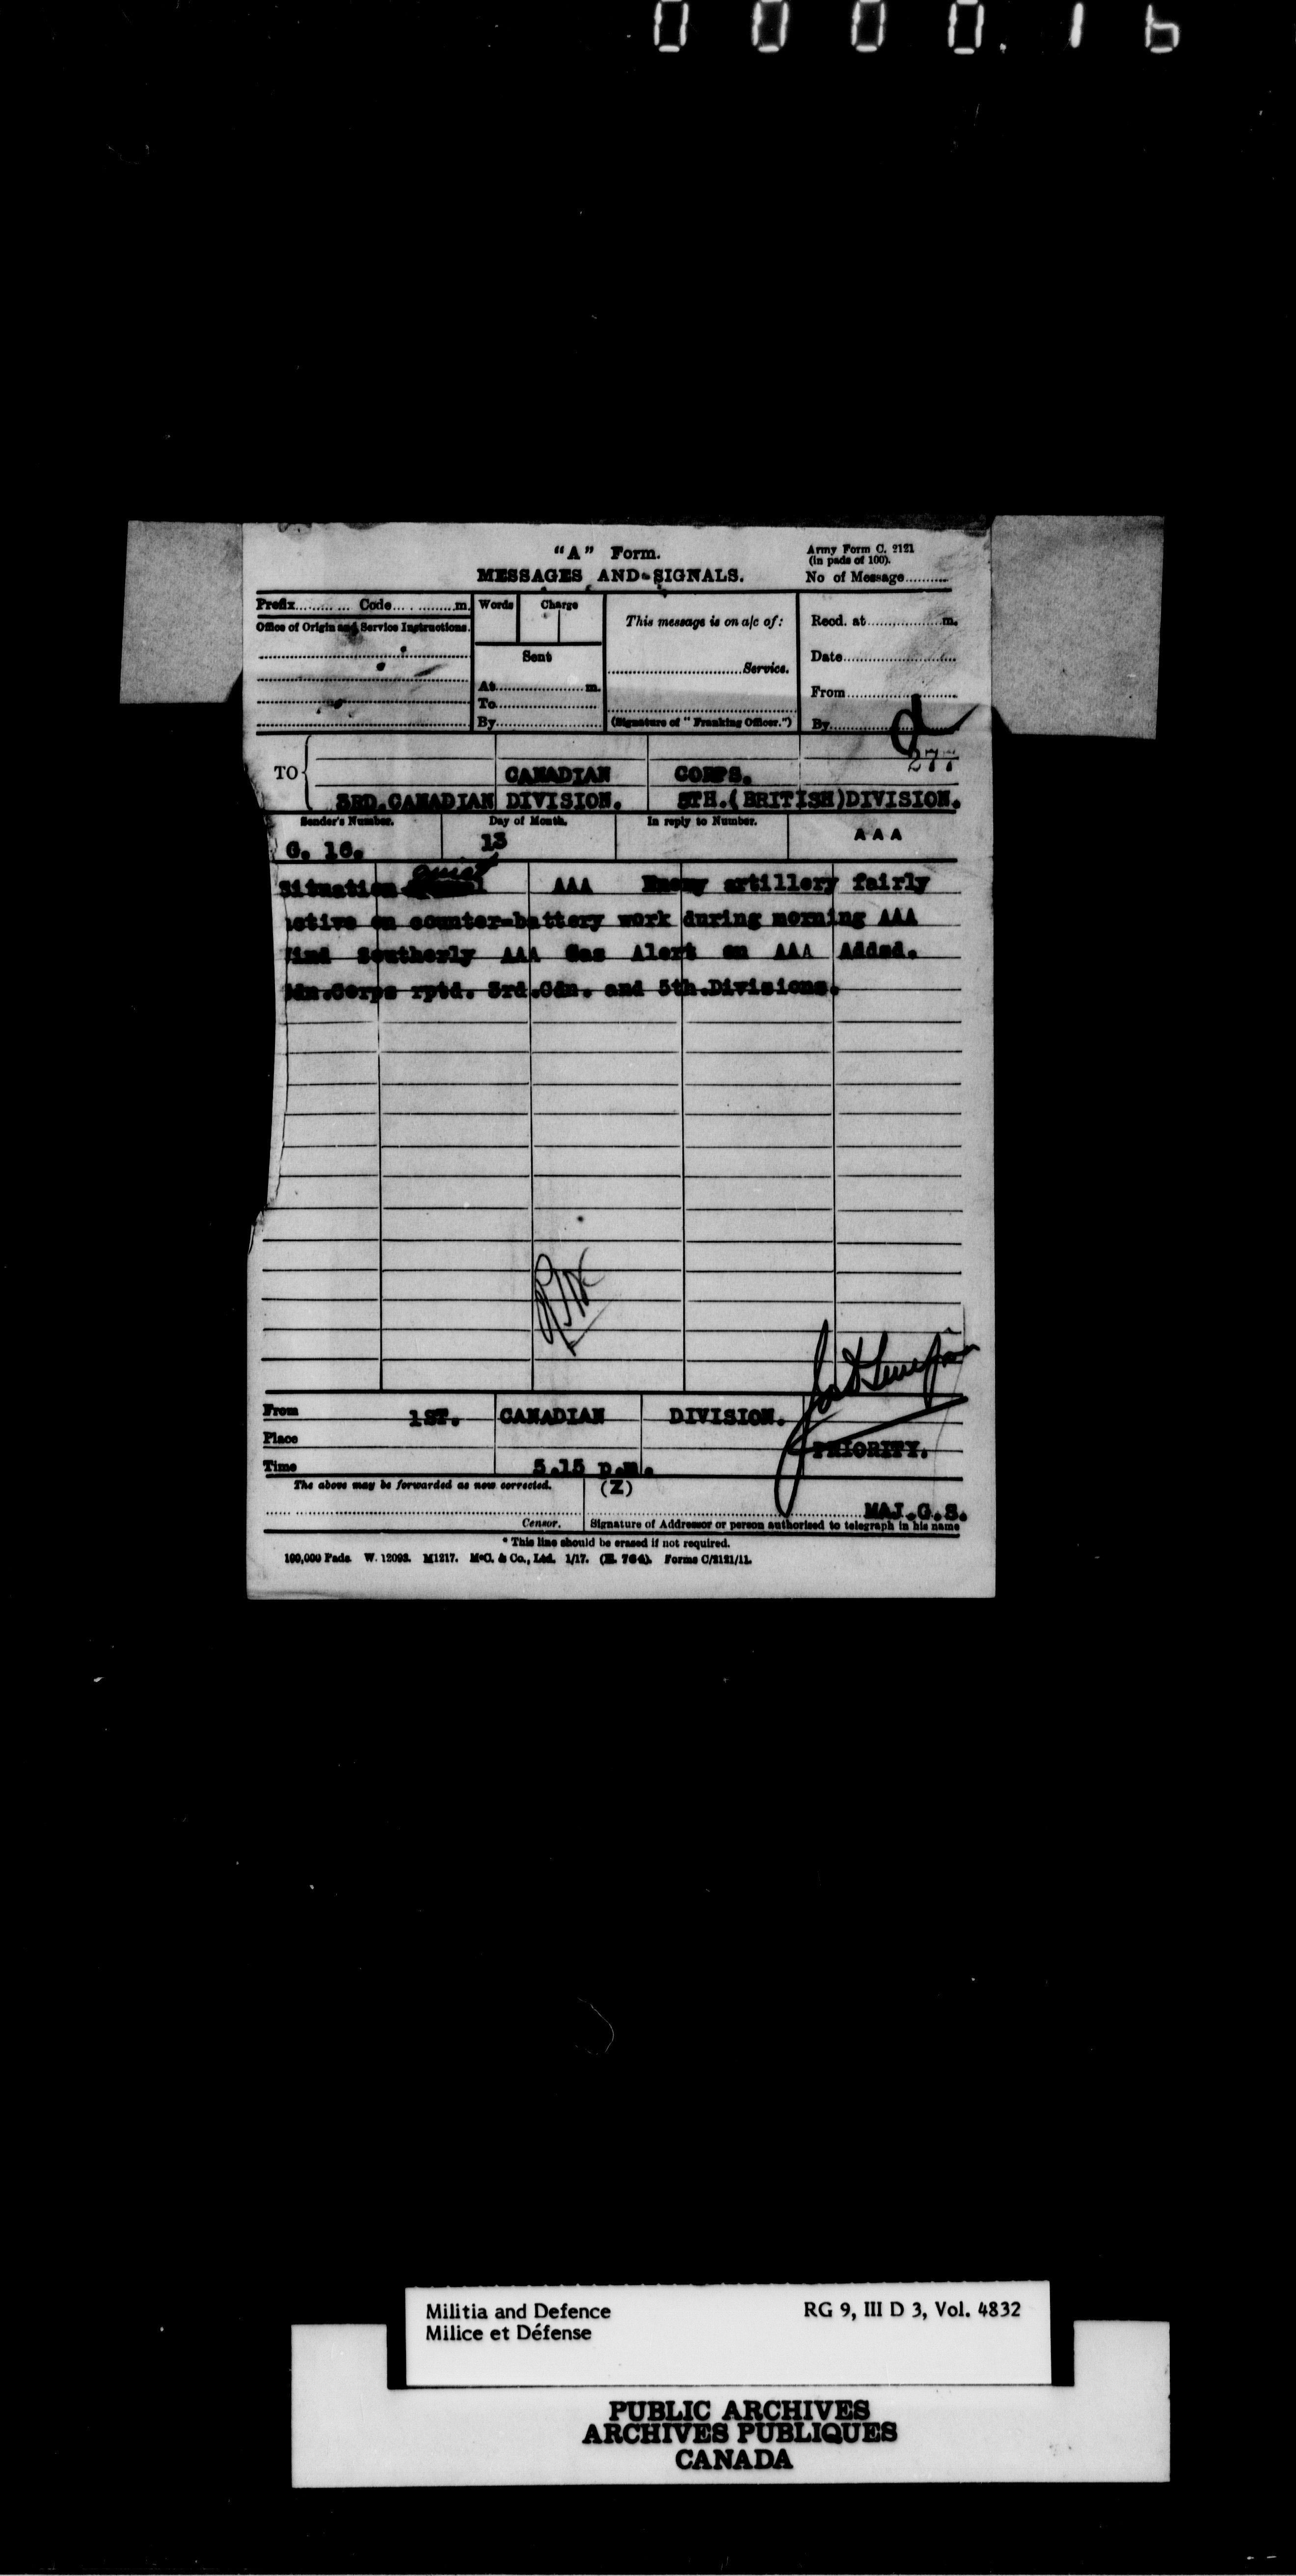 0 0 0 0. 1 6
"A" Form.
MESSAGES AND SIGNALS.
Army Form C. 2121
(in pads of 100).
No of Message..........
Prefix......... Code............m.
Office of Origin and Service Instructions.
Words Charge
Sent
At....................m.
To....................
By....................
This message is on a/c of:
....................Service.
(Signature of "Franking Officer.")
Recd. at....................m.
Date....................
From....................
By....................
277
TO
CANADIAN CORPS.
3RD.CANADIAN DIVISION. 5TH.(BRITISH)DIVISION.
Sender's Number. Day of Month. In reply to Number.
G. 16. 13 AAA
Situation quiet AAA Enemy artillery fairly
active on counter-battery work during morning AAA
Wind Southerly AAA Gas Alert on AAA Added.
Cdn.Corps rptd. 3rd.Cdn. and 5th.Divisions.
From 1ST. CANADIAN DIVISION.
Place
PRIORITY.
Time 5.15 p.m.
The above may be forwarded as now corrected. (Z)
MAJ.G.S.
Censor. Signature of Addressor or person authorised to telegraph in his name
* This line should be erased if not required.
100,000 Pads. W. 12093. M1217. McC. & Co., Ltd. 1/17. (E. 764). Forms C/2121/11.
Militia and Defence RG 9, III D 3, Vol. 4832
Milice et Défense
PUBLIC ARCHIVES
ARCHIVES PUBLIQUES
CANADA